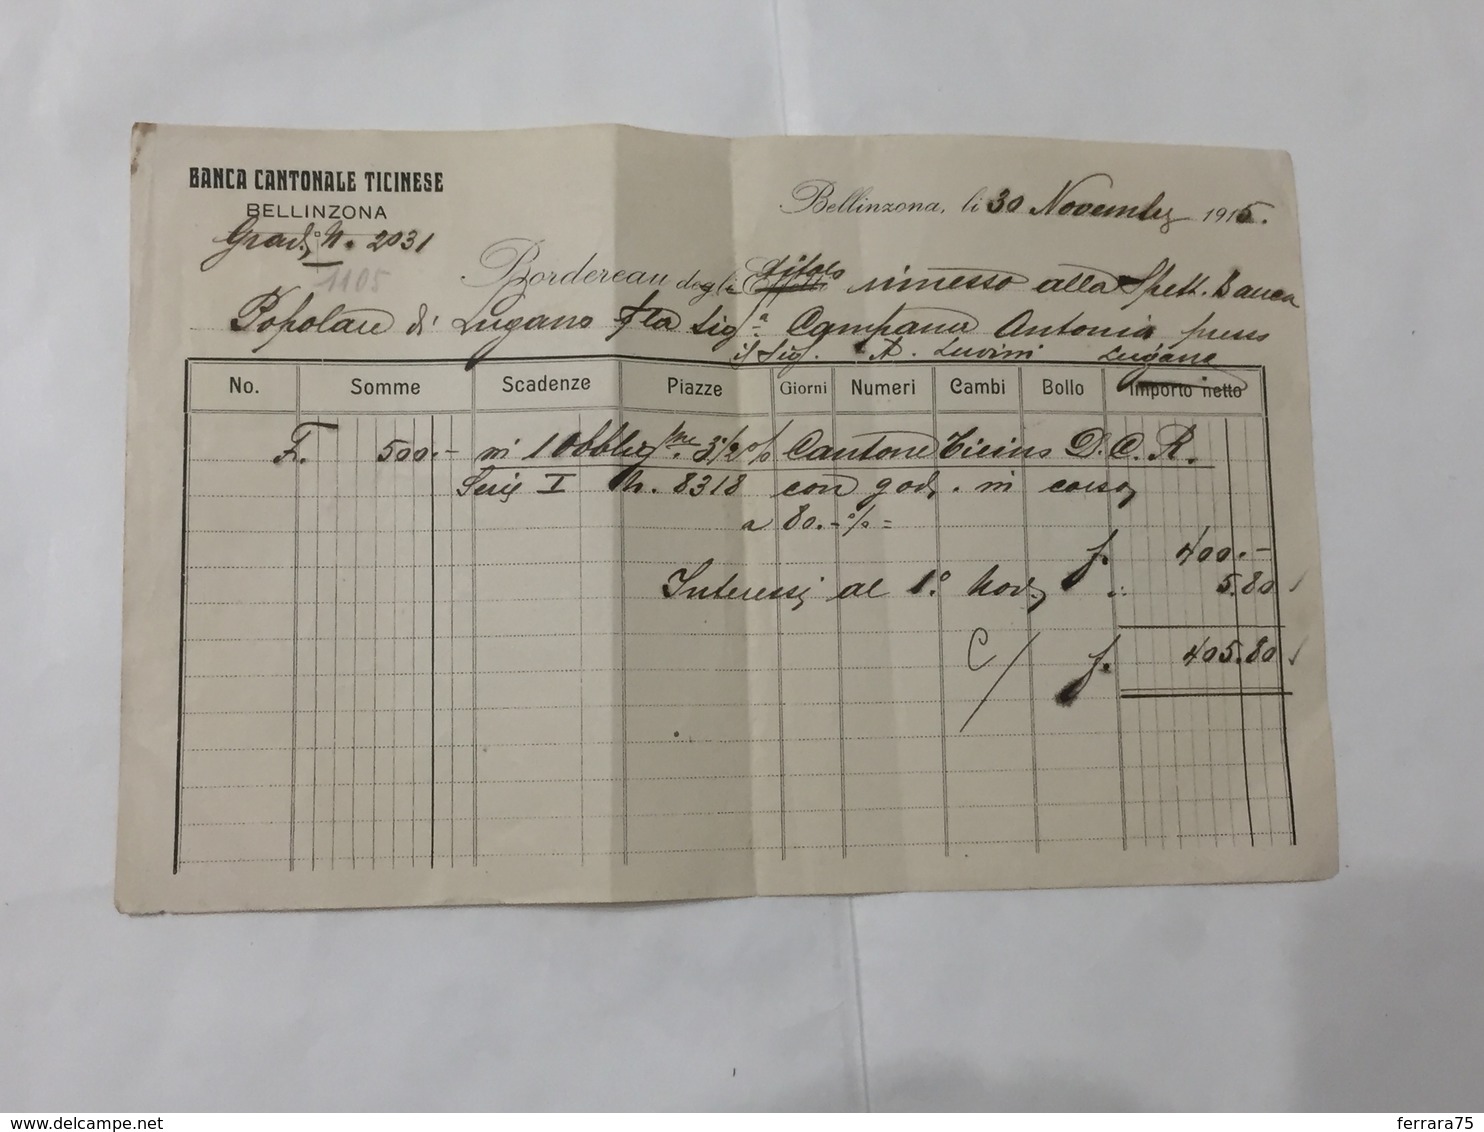 BANCA CANTONALE TICINESE
BELLINZONA
Bellinzona, li 30 Novembre 1915.
N. 2031
1105
Bordereau degli Effetti titolo rimesso alla Spett. Banca
Popolare di Lugano p/la Sig.a Campana Antonia presso
il Sig. A. Luvini Lugano
No. Somme Scadenze Piazze Giorni Numeri Cambi Bollo Importo netto
F. 500.- in 1 Obblig.ne 3 1/2 % Cantone Ticino D.C.R.
Serie I N. 8318 con god. in corso
a 80.-% =
f. 400.-
Interessi al 1° Nov. 5.80
C/ f. 405.80
ferrara75